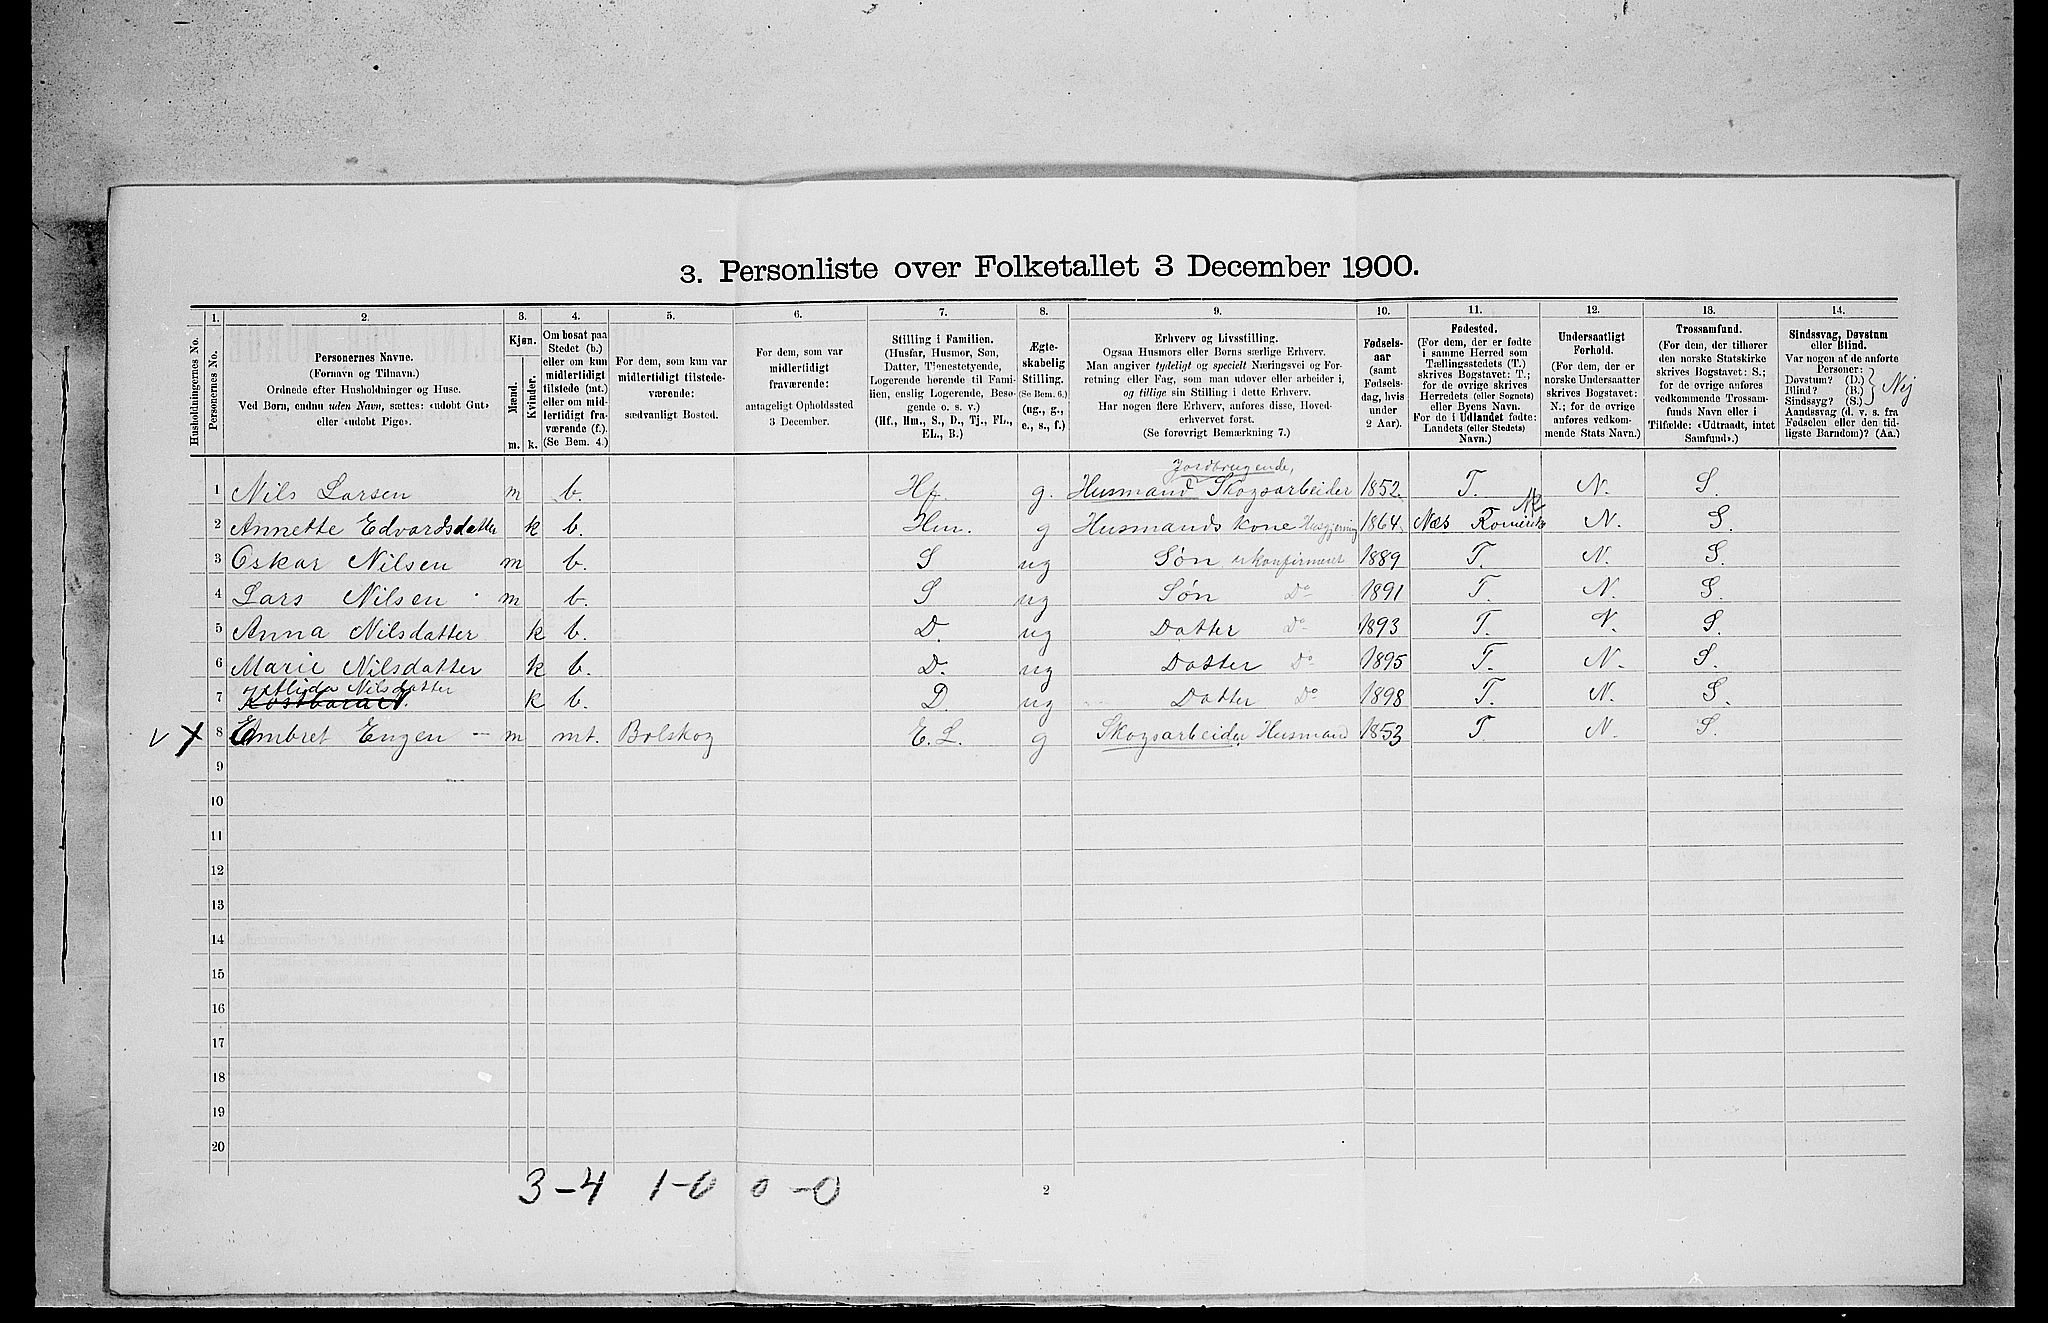 3. Personliste over Folketallet 3 December 1900.
1. 2. 3. 4. 5. 6. 7. 8. 9. 10. 11. 12. 13. 14.
Husholdningernes No.
Personernes No.
Personernes Navne.
(Fornavn og Tilnavn.)
Ordnede efter Husholdninger og Huse.
Ved Børn, endnu uden Navn, sættes: «udøbt Gut»
eller «udøbt Pige».
Kjøn.
Mænd.
Kvinder.
m. k.
Om bosat paa
Stedet (b.)
eller om kun
midlertidigt
tilstede (mt.)
eller om mid-
lertidigt fra-
værende (f.).
(Se Bem. 4.)
For dem, som kun var
midlertidigt tilstede-
værende:
sædvanligt Bosted.
For dem, som var
midlertidigt
fraværende:
antageligt Opholdssted
3 December.
Stilling i Familien.
(Husfar, Husmor, Søn,
Datter, Tjenestetyende,
Logerende hørende til Fami-
lien, enslig Logerende, Besø-
gende o. s. v.)
(Hf., Hm., S., D., Tj., FL.,
EL., B.)
Ægte-
skabelig
Stilling.
(Se Bem. 6.)
(ug., g.,
e., s., f.)
Erhverv og Livsstilling.
Ogsaa Husmors eller Børns særlige Erhverv.
Man angiver tydeligt og specielt Næringsvei og For-
retning eller Fag, som man udøver eller arbeider i,
og tillige sin Stilling i dette Erhverv.
Har nogen flere Erhverv, anføres disse, Hoved-
erhvervet først.
(Se forøvrigt Bemærkning 7.)
Fødsels-
aar
(samt
Fødsels-
dag, hvis
under
2 Aar).
Fødested.
(For dem, der er fødte
i samme Herred som
Tællingsstedets (T.)
skrives Bogstavet: T.;
for de øvrige skrives
Herredets (eller Sognets)
eller Byens Navn.
For de i Udlandet fødte:
Landets (eller Stedets)
Navn.)
Undersaatligt
Forhold.
(For dem, der er
norske Undersaatter
skrives Bogstavet:
N.; for de øvrige
anføres vedkom-
mende Stats Navn.)
Trossamfund.
(For dem, der tilhører
den norske Statskirke
skrives Bogstavet: S.;
for de øvrige anføres
vedkommende Trossam-
funds Navn eller i
Tilfælde: «Udtraadt, intet
Samfund».)
Sindssvag, Døvstum
eller Blind.
Var nogen af de anførte
Personer:
Døvstum? (D.)
Blind? (B.)
Sindssyg? (S.)
Aandssvag (d. v. s. fra
Fødselen eller den tid-
ligste Barndom)? (Aa.)
Nej
Jordbrugende,
1 Nils Larsen m b. Hf g. Husmand Skogsarbeider 1852. T. N. S.
2 Annette Edvardsdatter k b. Hm. g Husmands Kone Husgjerning 1864. Næs Romerike N. S.
3 Oskar Nilsen m b. S ug Søn ukonfirmeret 1889 T. N. S.
4 Lars Nilsen m b. S ug Søn Do 1891 T. N. S.
5 Anna Nilsdatter k b. D. ug Datter Do 1893 T. N. S.
6 Marie Nilsdatter k b. D. ug Datter Do 1895 T. N. S.
7 Nilsdatter k b. D. ug Datter Do 1898 T. N. S.
8 Embret Engen m mt. Bolskog E. L. g Skogsarbeider Husmand 1853 T. N. S.
9
10
11
12
13
14
15
16
17
18
19
20
3-4 1-0 0-0
2